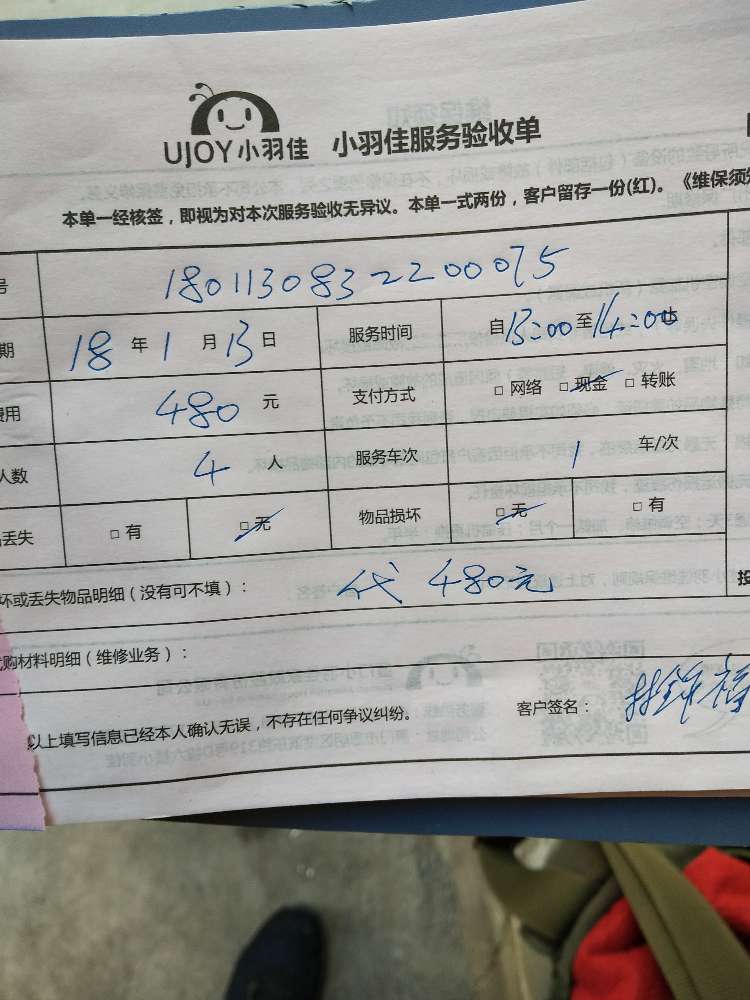 UJOY小羽佳 小羽佳服务验收单
本单一经核签，即视为对本次服务验收无异议。本单一式两份，客户留存一份(红)。《维保须知
号 180113083 2200075
期 18 年 1 月 13 日 服务时间 自 13:00 至 14:00 止
费用 480 元 支付方式 □ 网络 □ 现金 □ 转账
人数 4 人 服务车次 1 车/次
丢失 □ 有 □ 无 物品损坏 □ 无 □ 有
坏或丢失物品明细（没有可不填）： 代 480元
投
购材料明细（维修业务）：
以上填写信息已经本人确认无误，不存在任何争议纠纷。 客户签名：